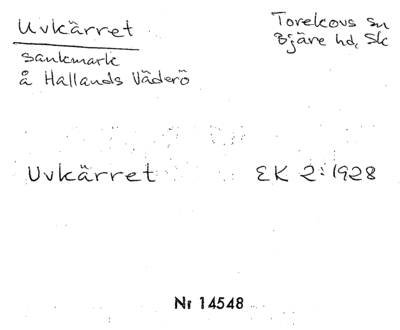 Uvkärret
Torekovs sn
Bjäre hd, Sk
sankmark
å Hallands Väderö
Uvkärret EK 2: 1928
Nr 14548